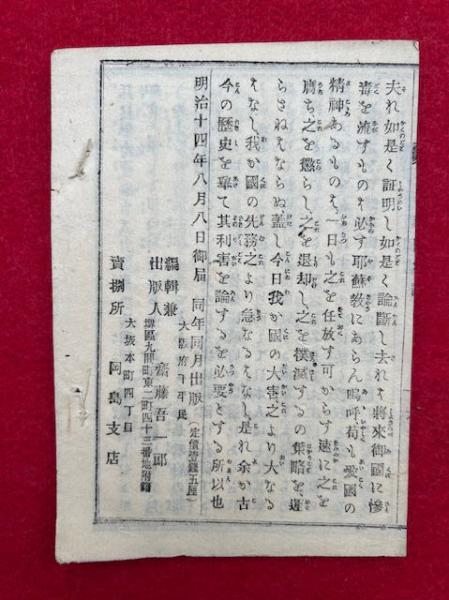 夫れ如是く証明し如是く論斷し去れは將來御國に慘
毒を流すものは必す耶蘇教にあらん嗚呼、苟も愛國の
精神あるものは一日も之を任放す可からす速に之を
之を懲らし之を退却し之を撲滅するの策略を
らさねはならぬ蓋し今日我か國の大害、之より大なる
はなし、我か國の先務、之より急なるはなし是れ余か古
今の歷史を挙て其利害を論するを必要とする所以也
明治十四年八月八日御届 同年同月出版(定價壹錢五厘)
大阪府平民
編輯兼出版人 齋藤吾一郎
區九間町東二町四十三番地
大坂本町四丁目
賣捌所 岡島支店